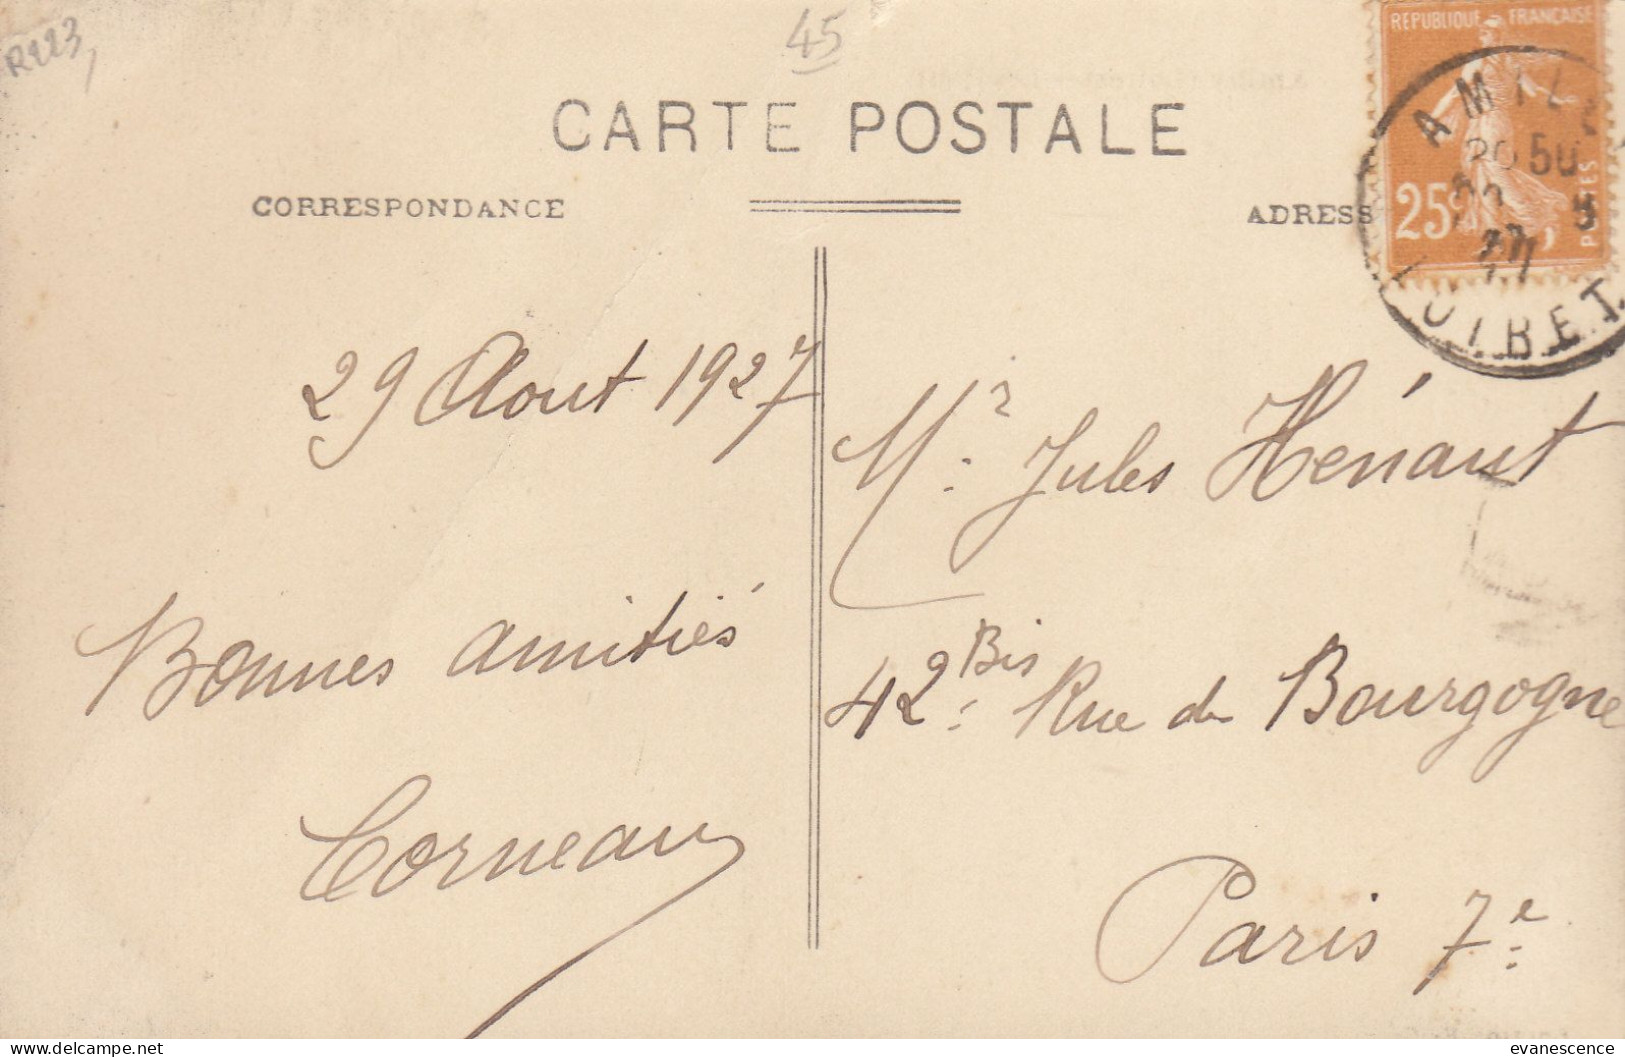 R223,
45
REPUBLIQUE FRANÇAISE
25c
POSTES
AMILLY
LOIRET
CARTE POSTALE
CORRESPONDANCE
ADRESS
29 Aout 1927
Bonnes amitiés
Corneau
Mr. Jules Hénaut
42 Bis Rue de Bourgogne
Paris 7e
evanescence